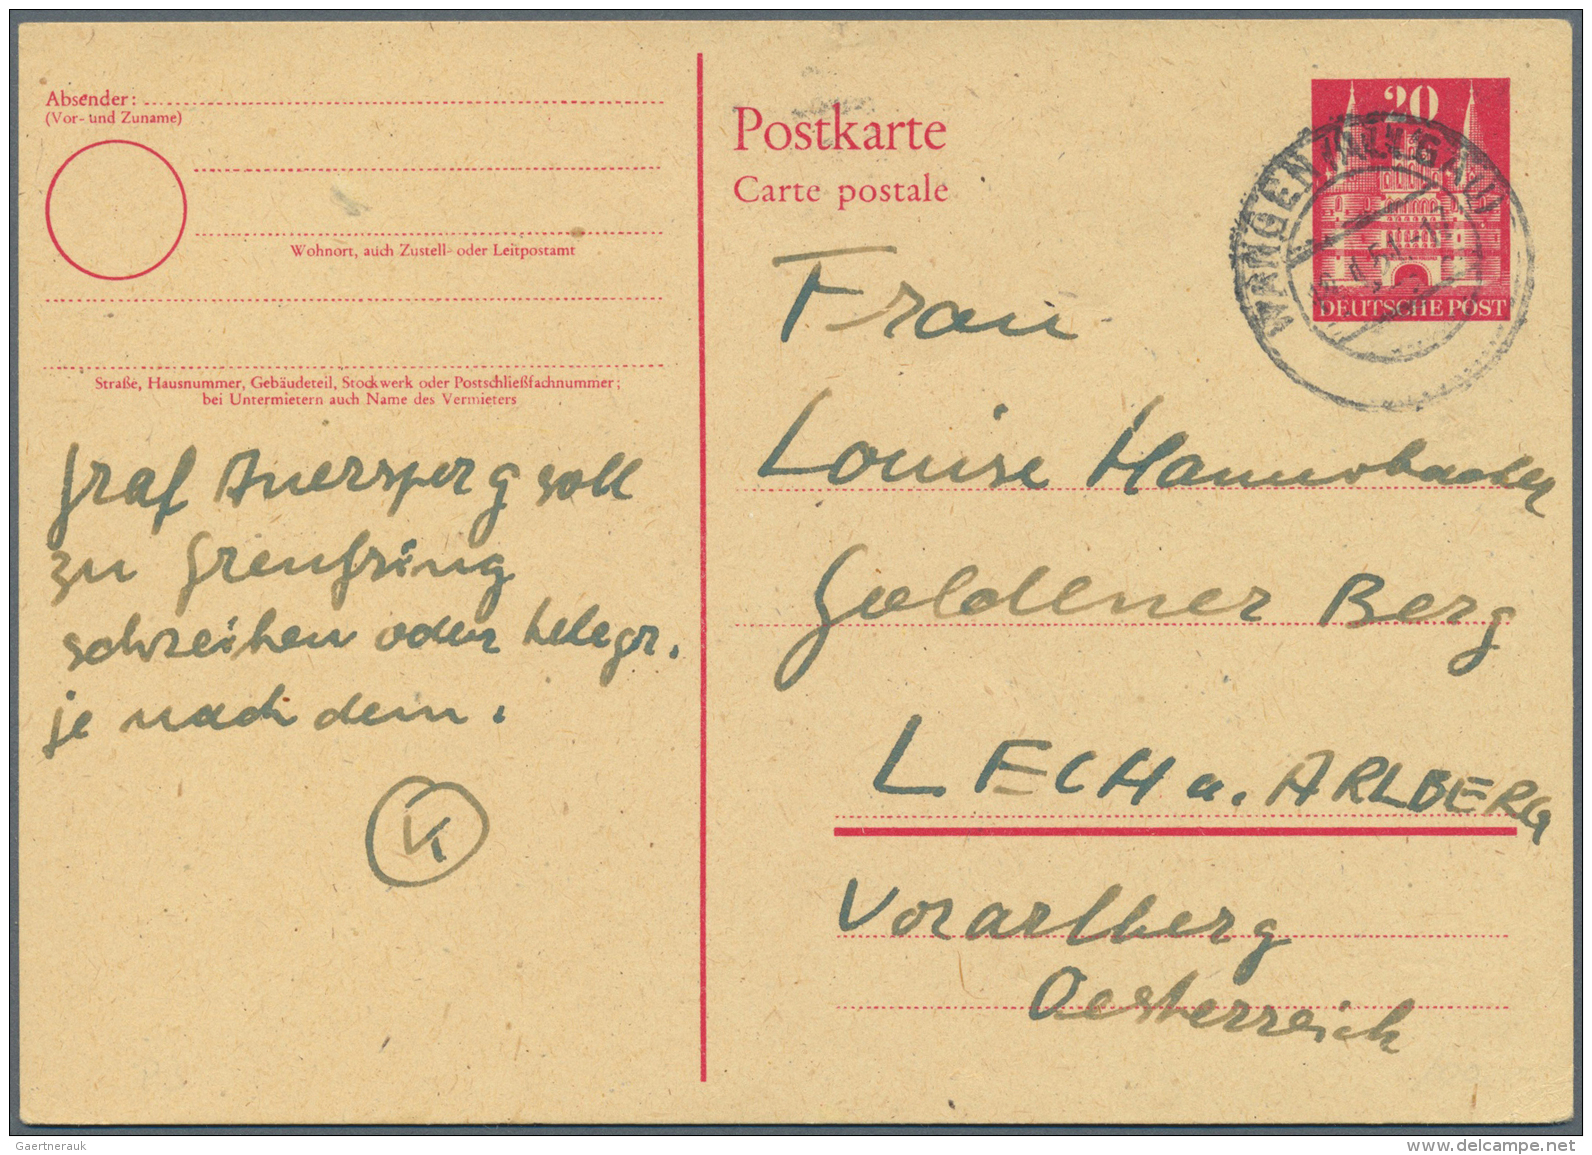 Absender:
(Vor- und Zuname)
Wohnort, auch Zustell- oder Leitpostamt
Straße, Hausnummer, Gebäudeteil, Stockwerk oder Postschließfachnummer;
bei Untermietern auch Name des Vermieters
Graf Auersperg soll
zu
schreiben oder telegr.
je nach dem.
K
Postkarte
Carte postale
20
DEUTSCHE POST
WANGEN (ALLGÄU)
Frau
Louise
Goldener Berg
LECH a. ARLBERG
Vorarlberg
Oesterreich
Gaertnerauk
www.delcampe.net